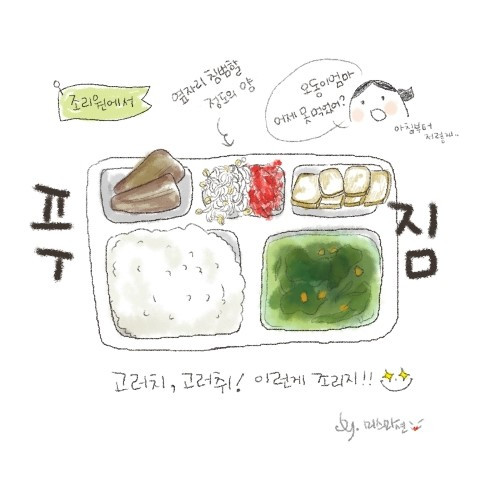 조리원에서
옆자리 침범할
정도의 양
오동이엄마
어제 못먹었어?
아침부터
저렇게..
푸
짐
고러치, 고러취! 이런게 조리지!!
by.